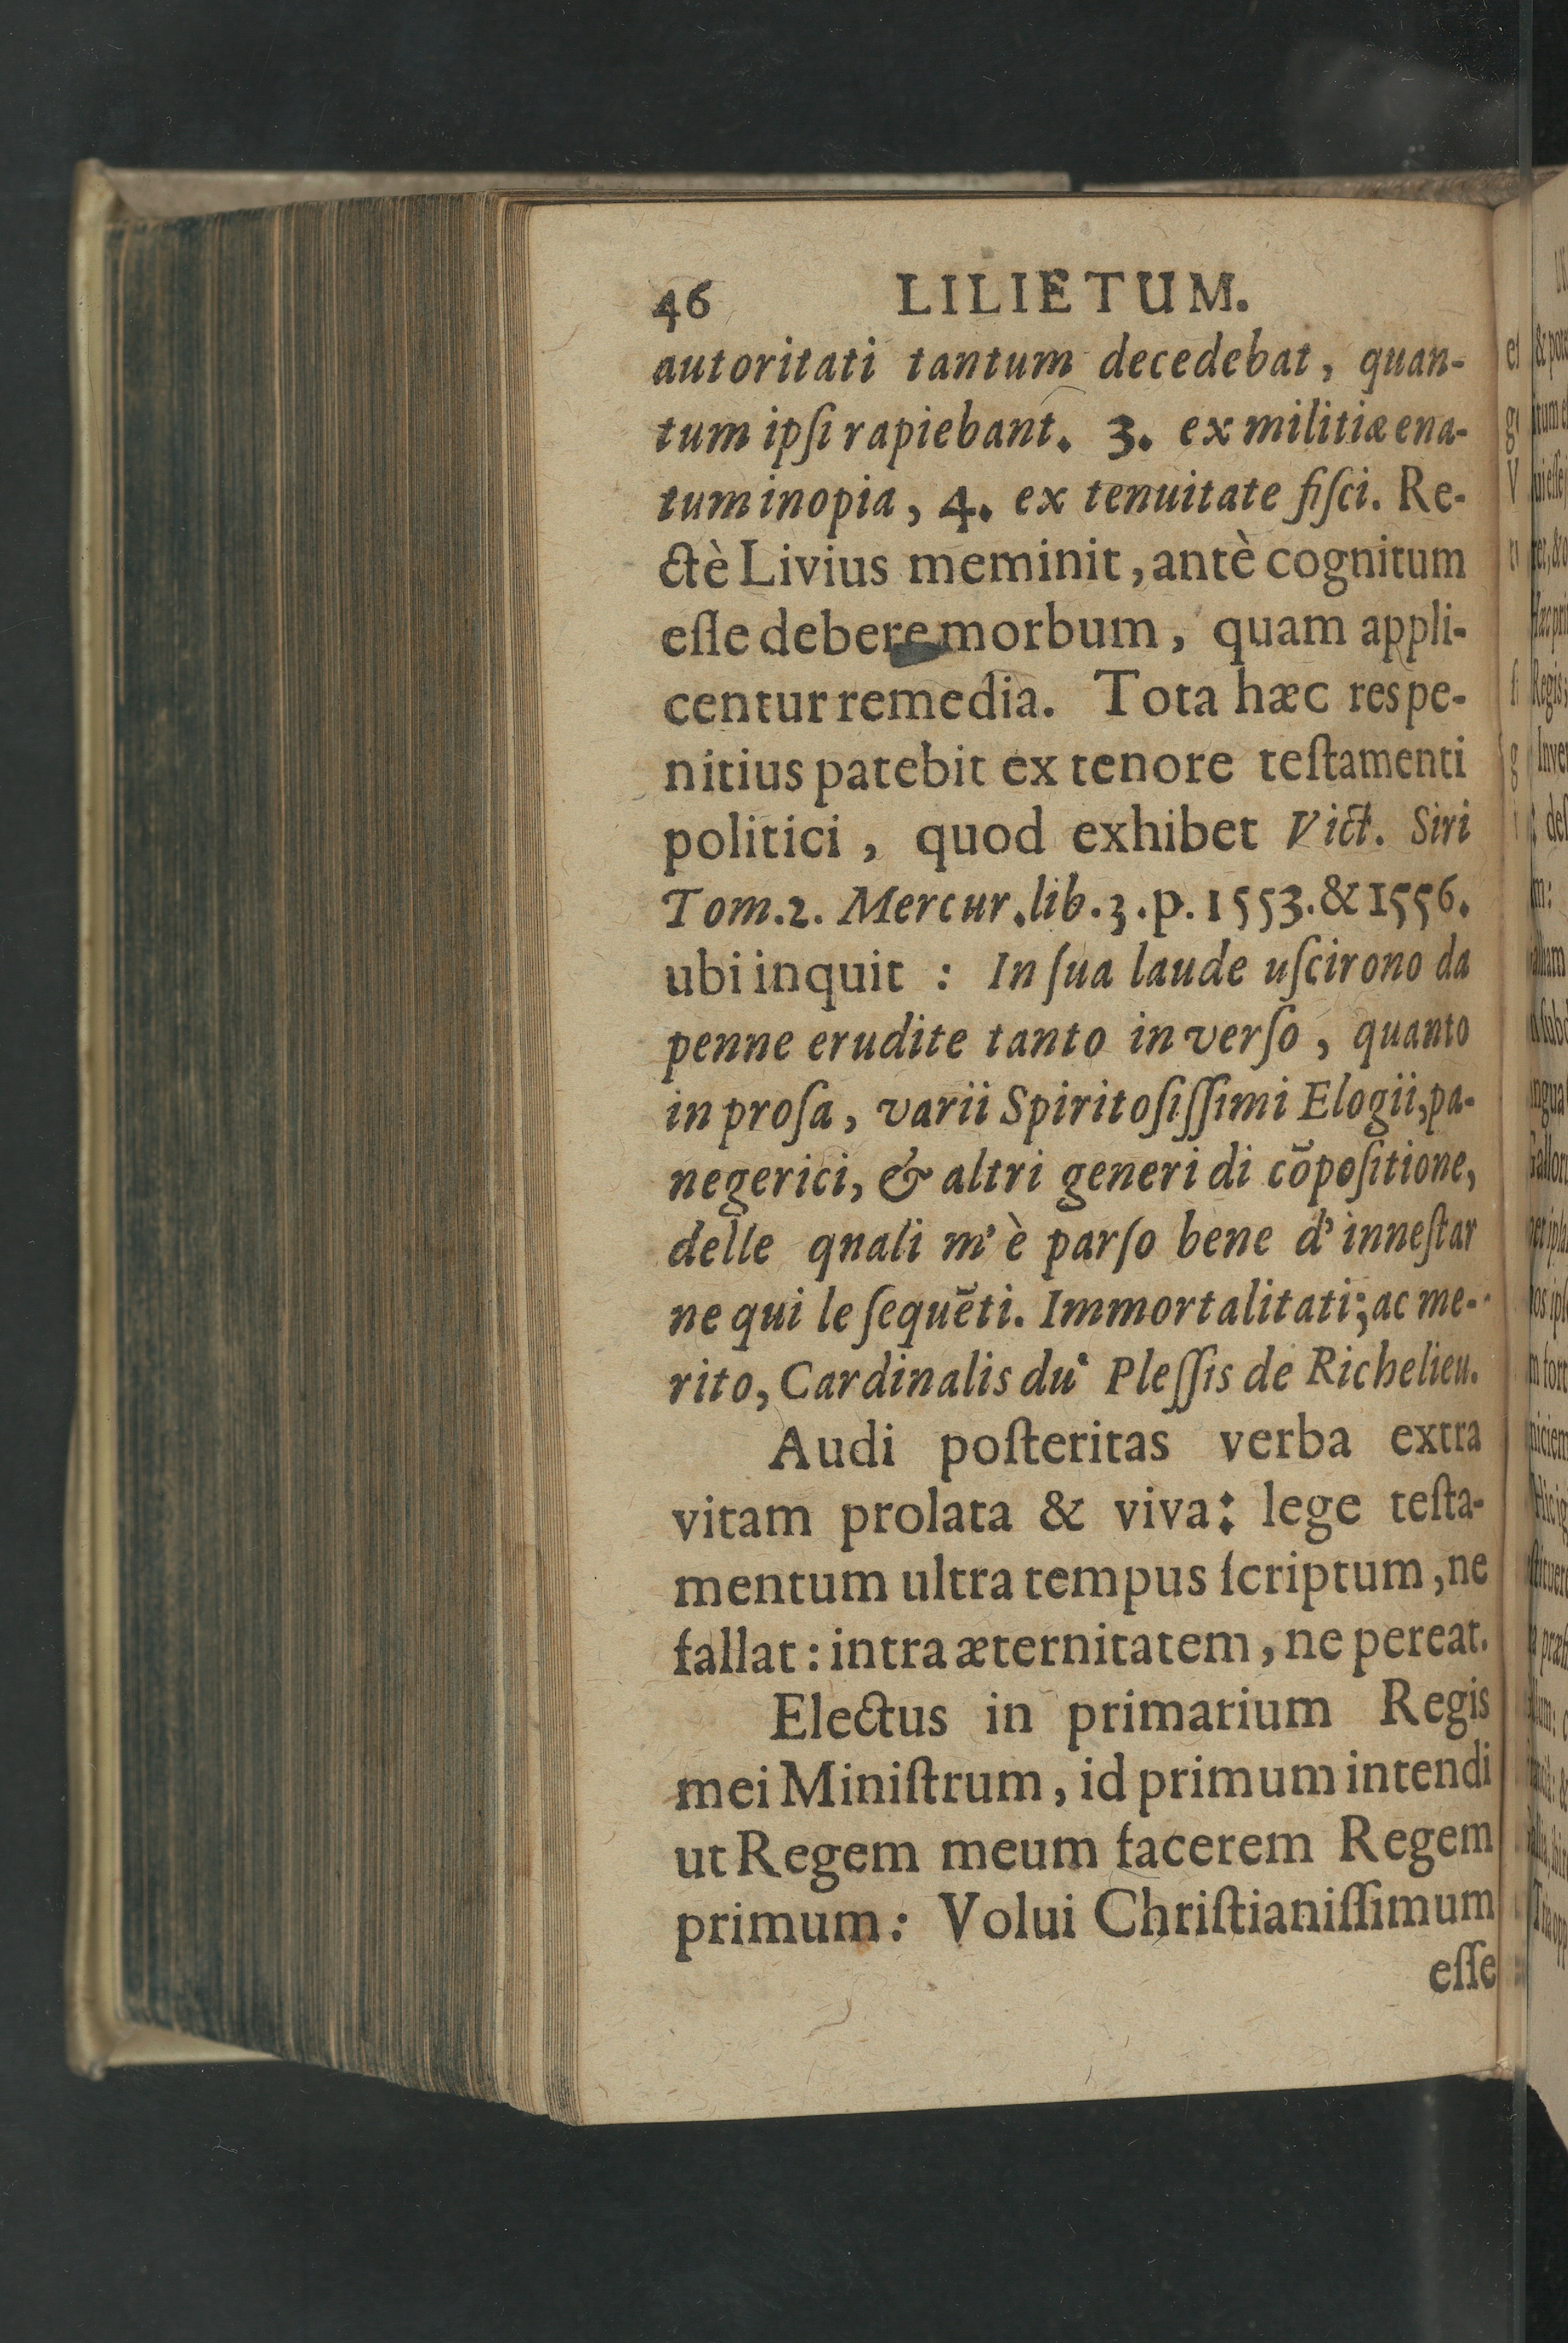 46 LILIETUM.
autoritati tantum decedebat, quan-
tum ipſi rapiebant. 3. ex militiæ ena-
tum inopia, 4. ex tenuitate fiſci. Re-
ctè Livius meminit, antè cognitum
eſſe debere morbum, quam appli-
centur remedia. Tota hæc res pe-
nitius patebit ex tenore teſtamenti
politici, quod exhibet Vict. Siri
Tom. 2. Mercur. lib. 3. p. 1553. & 1556.
ubi inquit : In ſua laude uſcirono da
penne erudite tanto in verſo, quanto
in proſa, varii Spiritoſiſſimi Elogii, pa-
negerici, & altri generi di cõpoſitione,
delle qnali m' è parſo bene d' inneſtar
ne qui le ſequẽti. Immortalitati; ac me-
rito, Cardinalis du Pleſſis de Richelieu.
Audi poſteritas verba extra
vitam prolata & viva: lege teſta-
mentum ultra tempus ſcriptum, ne
fallat: intra æternitatem, ne pereat.
Electus in primarium Regis
mei Miniſtrum, id primum intendi
ut Regem meum facerem Regem
primum: Volui Chriſtianiſſimum
eſſe